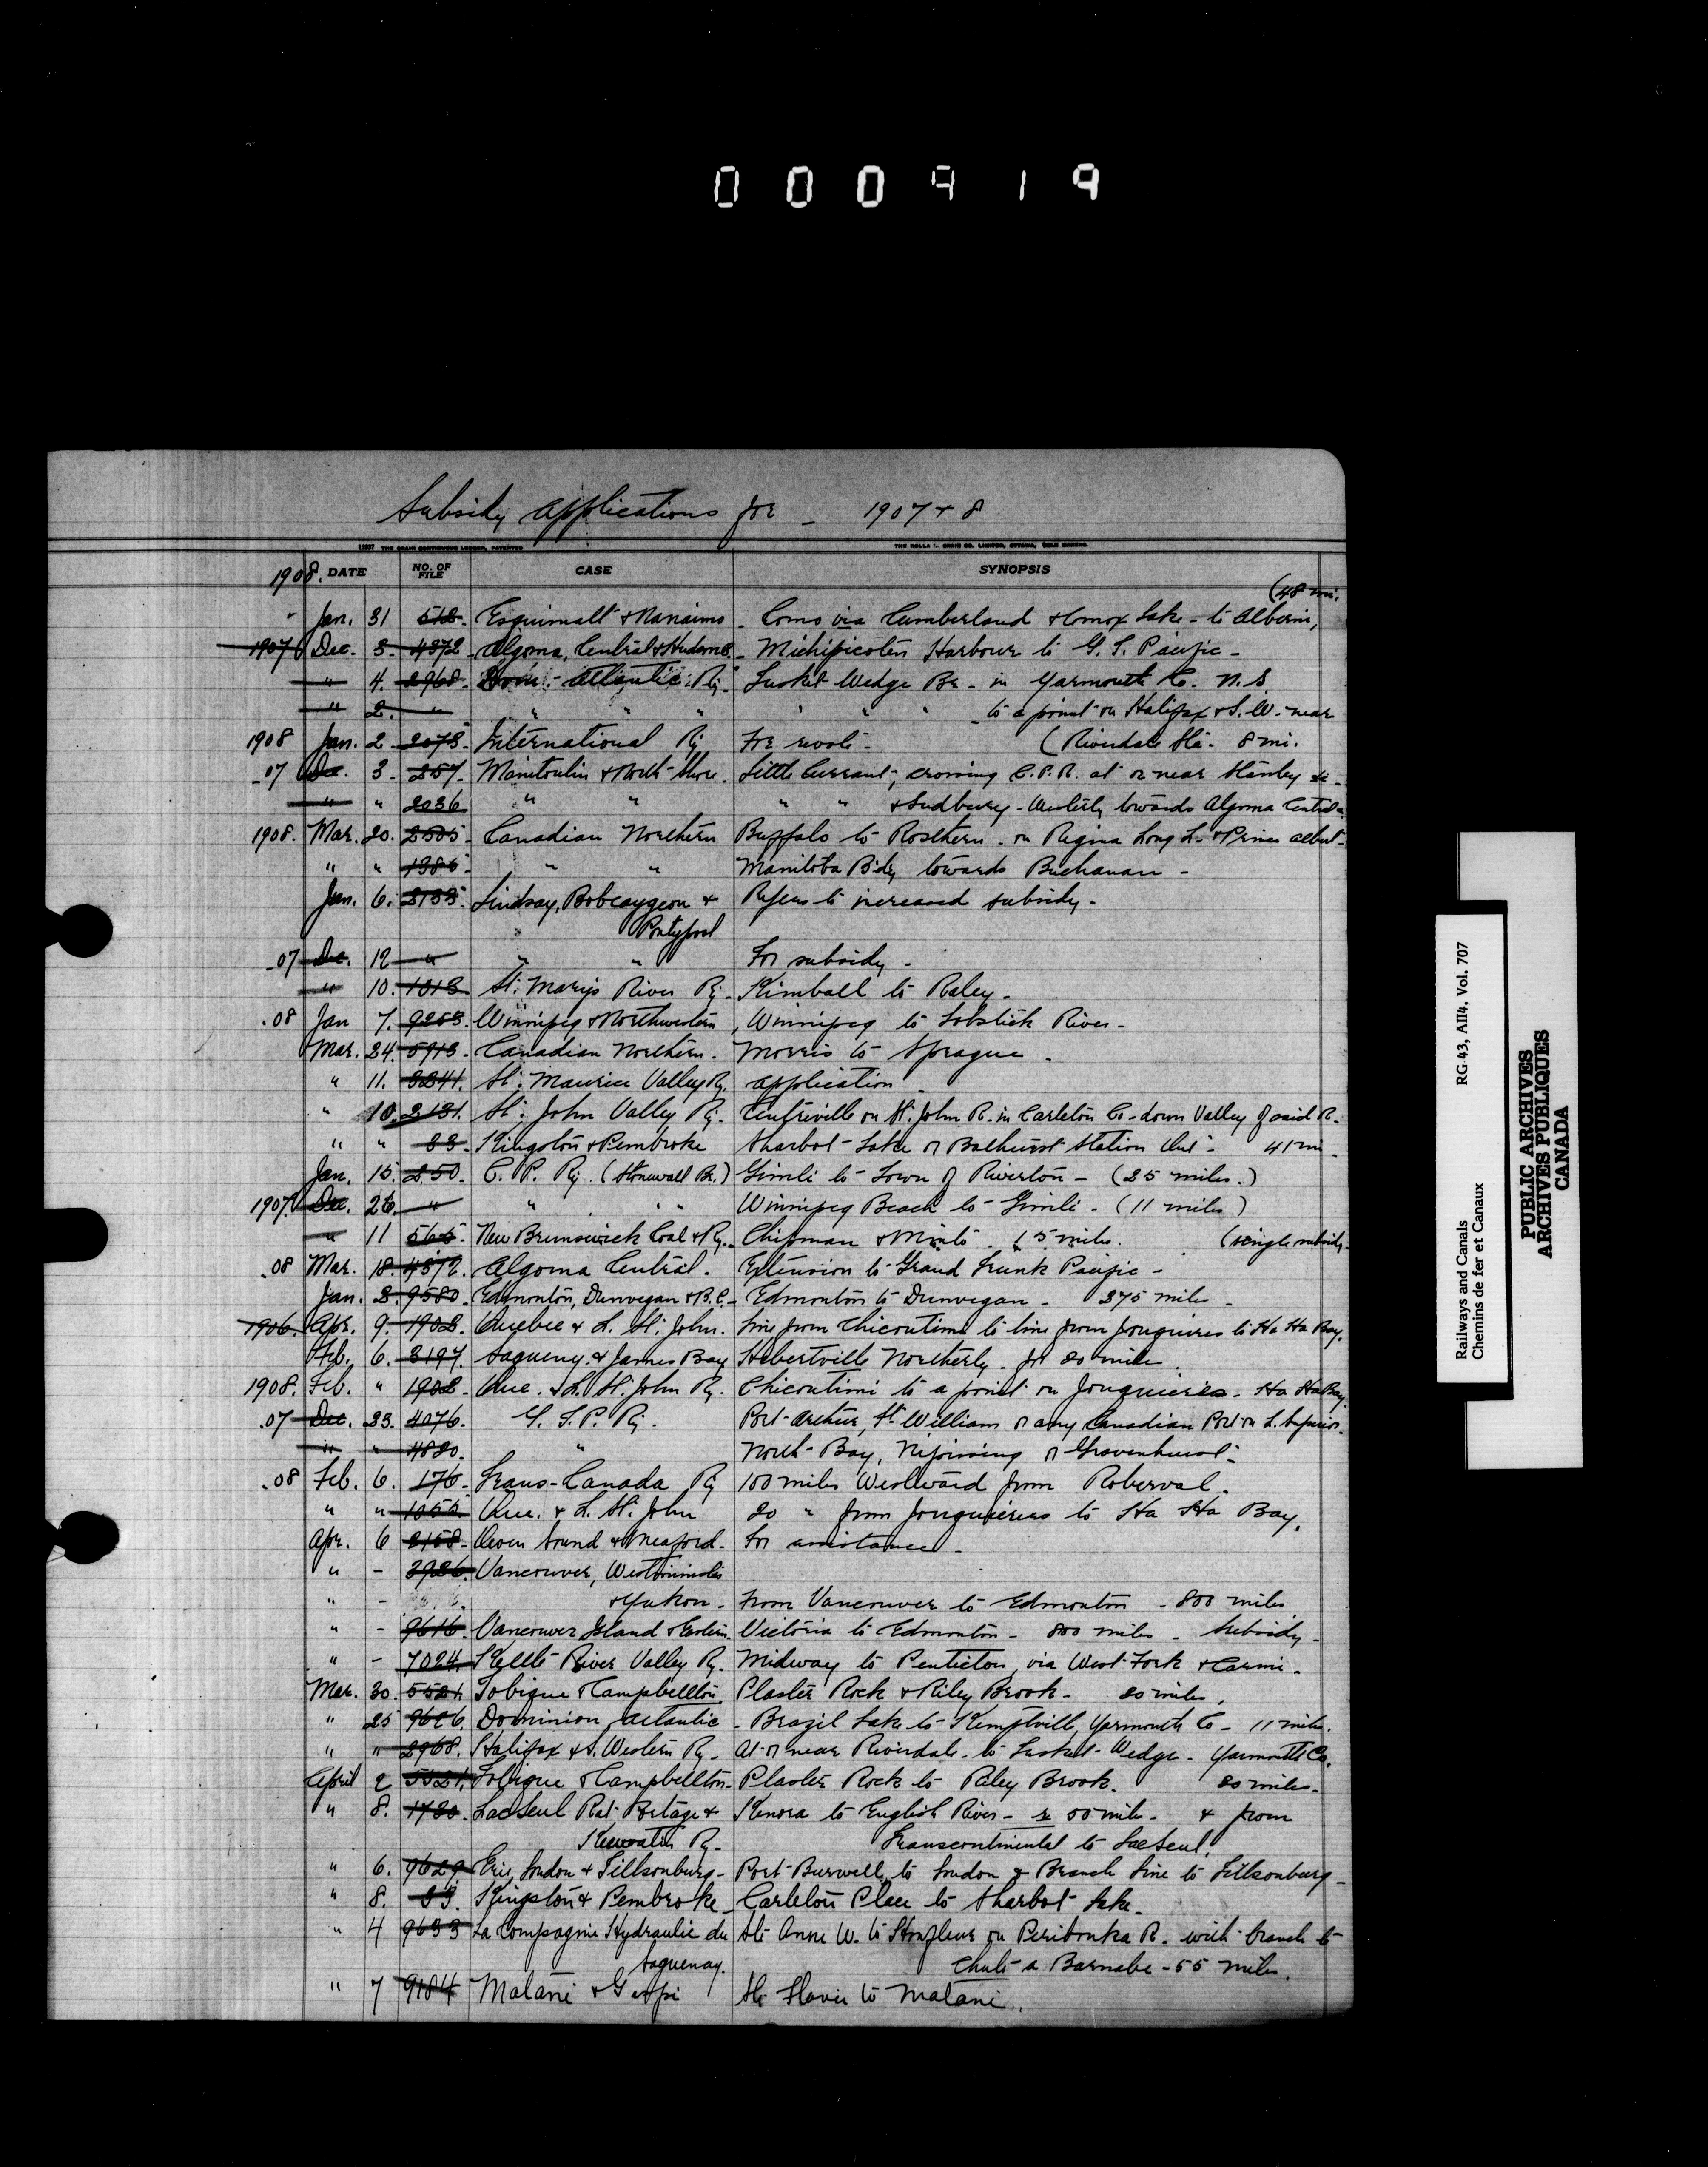 000919
Subsidy applications for - 1907 + 8
12957 THE CRAIN CONTINUOUS LEDGER, PATENTED
1908. DATE NO. OF FILE CASE SYNOPSIS
(48 mi.
" Jan. 31 512. Esquimalt & Nanaimo - Como via Cumberland & Comox Lake - to Alberni,
1907 Dec. 3. 4372. Algoma, Central & Hudson B. - Michipicoten Harbour to G. T. Pacific -
" 4. 2968. Dom: Atlantic Ry. Tusket Wedge Br. - in Yarmouth Co. N.S.
" 2. " " " " " " " to a point on Halifax & S. W. near
1908 Jan. 2. 2073. International Ry For revote - (Riverdale Sta. 8 mi.
.07 Dec. 3. 257. Manitoulin & North Shore. Little Current, crossing C.P.R. at or near Stanley
" " 2036 " " " " & Sudbury - Westerly towards Algoma Central
1908. Mar. 20. 2505. Canadian Northern Buffalo to Rosthern - on Regina Long L. & Prince Albert -
" " 1386. " " Manitoba Bdy towards Buchanan -
Jan. 6. 2133. Lindsay, Bobcaygeon & Refers to increased subsidy -
Pontypool
.07 Dec. 12 " " " For subsidy -
" 10. 1013 St. Mary's River Ry - Kimball to Raley -
.08 Jan 7. 9253. Winnipeg & Northwestern, Winnipeg to Lobstick River -
Mar. 24. 5913. Canadian Northern. Morris to Sprague.
" 11. 3241. St. Maurice Valley Ry. application
" 10. 2131. St. John Valley Ry. Centreville on St. John R. in Carleton Co - down Valley of said R.
" " 33. Kingston & Pembroke Sharbot Lake or Bathurst Station Ont - 41 mi.
Jan. 15. 250. C. P. Ry. (Stonewall Br.) Gimli to Town of Riverton - (25 miles.)
1907. Dec. 26. " " " " Winnipeg Beach to Gimli - (11 miles)
" 11 565. New Brunswick Coal & Ry. Chipman & Minto. 15 miles. (single subsidy -
.08 Mar. 18. 4372. Algoma Central. Extension to Grand Trunk Pacific -
Jan. 2. 9580. Edmonton, Dunvegan & B.C. - Edmonton to Dunvegan - 375 miles -
1906. Apr. 9. 1902. Quebec & L. St. John. Line from Chicoutimi to line from Jonquieres to Ha Ha Bay.
Feb. 6. 3197. Saguenay & James Bay Hebertville Northerly for 20 miles.
1908. Feb. " 1902. Que. & L. St. John Ry. Chicoutimi to a point on Jonquieres - Ha Ha Bay
.07 Dec. 23. 4076. G. T. P. Ry. Port Arthur, Ft. William or any Canadian Port on L. Superior.
" " 4820. " North Bay, Nipissing or Gravenhurst -
.08 Feb. 6. 176. Trans-Canada Ry 100 miles Westward from Roberval.
" " 1055. Que. & L. St. John 20 " from Jonquieres to Ha Ha Bay.
Apr. 6 2158. Owen Sound & Meaford. For assistance -
" - 3926. Vancouver, Westminster
" - & Yukon - From Vancouver to Edmonton - 800 miles
" - 9616. Vancouver Island & Eastern. Victoria to Edmonton - 800 miles - Subsidy -
" - 7024. Kettle River Valley Ry. Midway to Penticton, via West Fork & Carmi -
Mar. 30. 5521. Tobique & Campbellton. Plaster Rock & Riley Brook - 20 miles,
" 25 9626. Dominion Atlantic - Brazil Lake to Kemptville, Yarmouth Co - 11 miles.
" " 2968. Halifax & S. Western Ry - At or near Riverdale - to Tusket Wedge - Yarmouth Co.
April 2 5521. Tobique & Campbellton - Plaster Rock to Riley Brook. 20 miles -
" 8. 1720. Lac Seul Rat Portage & Kenora to English River - miles - & from
Keewatin Ry - Transcontinental to Lac Seul.
" 6. 9629. Erie, London & Tillsonburg - Port Burwell, to London & Branch Line to Tillsonburg -
" 8. 33. Kingston & Pembroke - Carleton Place to Sharbot Lake -
" 4 9633 La Compagnie Hydraulic du St. Anne W. to Honfleur on Peribonka R. with branch to
Saguenay. Chute a Barnabe - 55 miles.
" 7 9184 Matane & Gaspe Ste Flavie to Matane.
Railways and Canals RG 43, AII4, Vol. 707
Chemins de fer et Canaux
PUBLIC ARCHIVES
ARCHIVES PUBLIQUES
CANADA